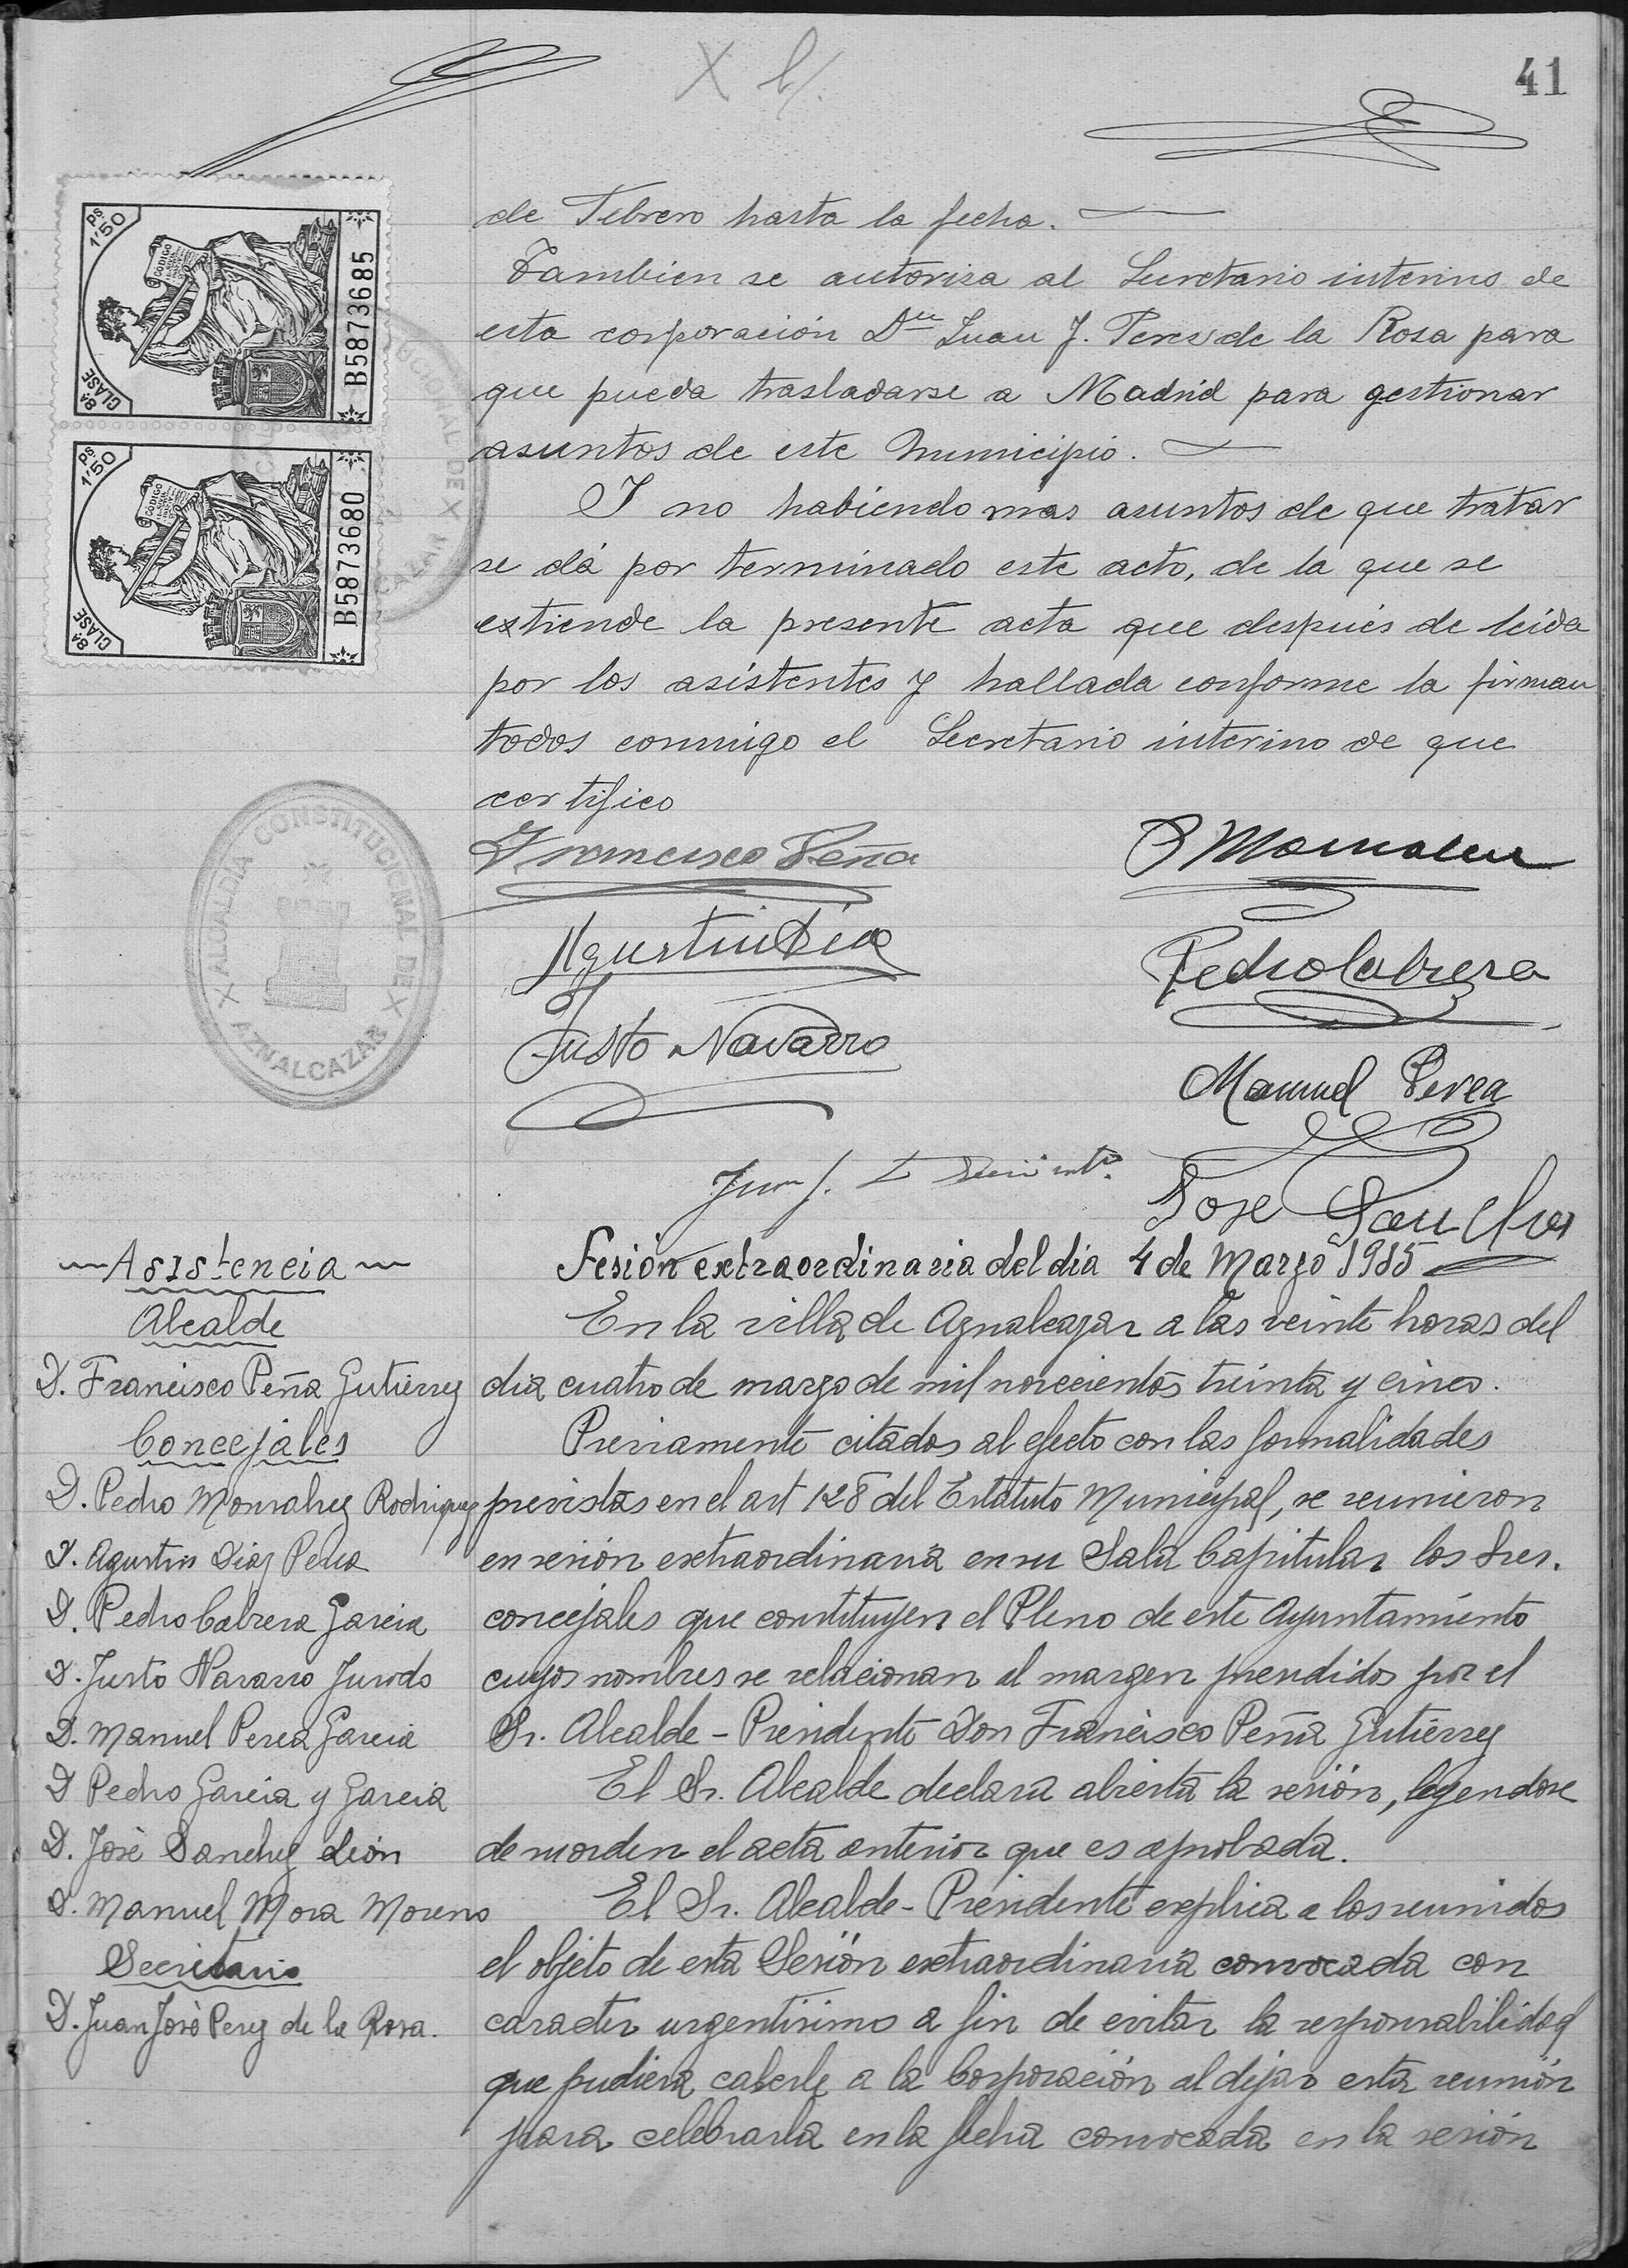 X
41
ps 1'50
8ª CLASE
CODIGO
B5873685
ps 1'50
8ª CLASE
CODIGO
B5873680
de Febrero hasta la fecha.
Tambien se autoriza al Secretario interino de
esta corporación Dⁿ Juan J. Perez de la Rosa para
que pueda trasladarse a Madrid para gestionar
asuntos de este Municipio.
Y no habiendo mas asuntos de que tratar
se dá por terminado este acto, de la que se
extiende la presente acta que después de leida
por los asistentes y hallada conforme la firman
todos conmigo el Secretario interino de que
certifico
ALCALDIA CONSTITUCIONAL DE
AZNALCAZAR
Francisco Peña
Agustin Diaz
Pedro Cabrera
Justo Navarro
Manuel Perea
Jose Sanchez
Asistencia
Alcalde
D. Francisco Peña Gutierrez
Concejales
D. Pedro Monsalvez Rodriguez
D. Agustin Diaz Peña
D. Pedro Cabrera Garcia
D. Justo Navarro Jurado
D. Manuel Perea Garcia
D Pedro Garcia y Garcia
D. José Sanchez León
D. Manuel Mora Moreno
Secretario
D. Juan José Perez de la Rosa.
Sesión extraordinaria del dia 4 de Marzo 1935
En la villa de Aznalcazar a las veinte horas del
dia cuatro de marzo de mil novecientos treinta y cinco.
Previamente citados al efecto con las formalidades
previstas en el art 128 del Estatuto Municipal, se reunieron
en sesión extraordinaria en su Sala Capitular los Sres.
concejales que constituyen el Pleno de este Ayuntamiento
cuyos nombres se relacionan al margen presididos por el
Sr. Alcalde - Presidente Don Francisco Peña Gutierrez
El Sr. Alcalde declara abierta la sesión, leyendose
de su orden el acta anterior que es aprobada.
El Sr. Alcalde - Presidente explica a los reunidos
el objeto de esta Sesión extraordinaria convocada con
caracter urgentisimo a fin de evitar la responsabilidad
que pudiera caberle a la Corporación al dejar esta reunión
para celebrarla en la fecha convocada en la sesión